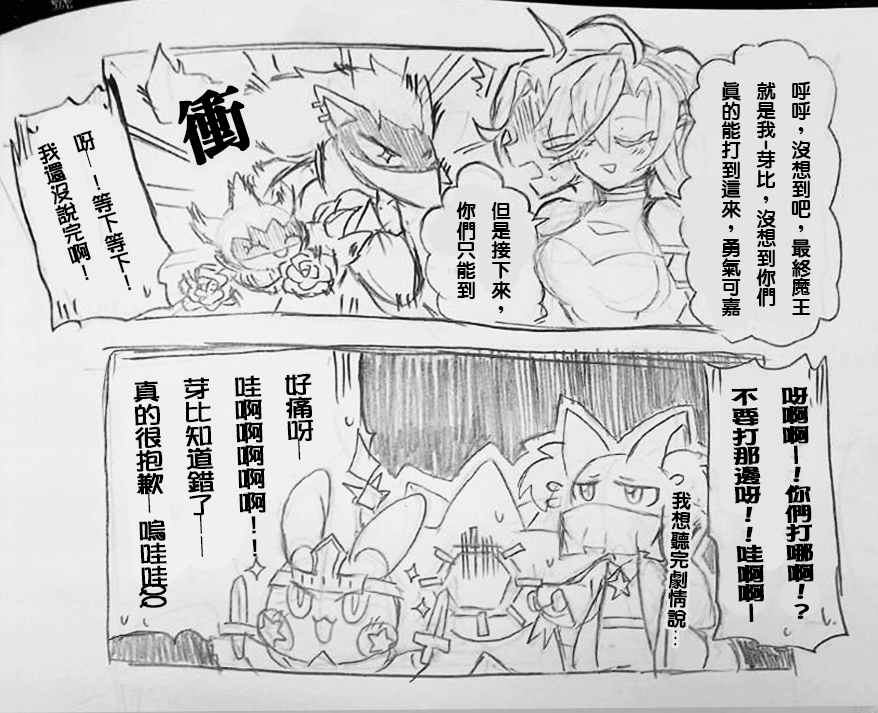 呼呼，沒想到吧，最終魔王
就是我-芽比，沒想到你們
真的能打到這來，勇氣可嘉
但是接下來，
你們只能到
衝
呀—！等下等下！
我還沒說完啊！
呀啊啊—！你們打哪啊！？
不要打那邊呀！！哇啊啊—
我想聽完劇情說…
好痛呀—
哇啊啊啊啊啊！！
芽比知道錯了——
真的很抱歉—嗚哇哇QQ